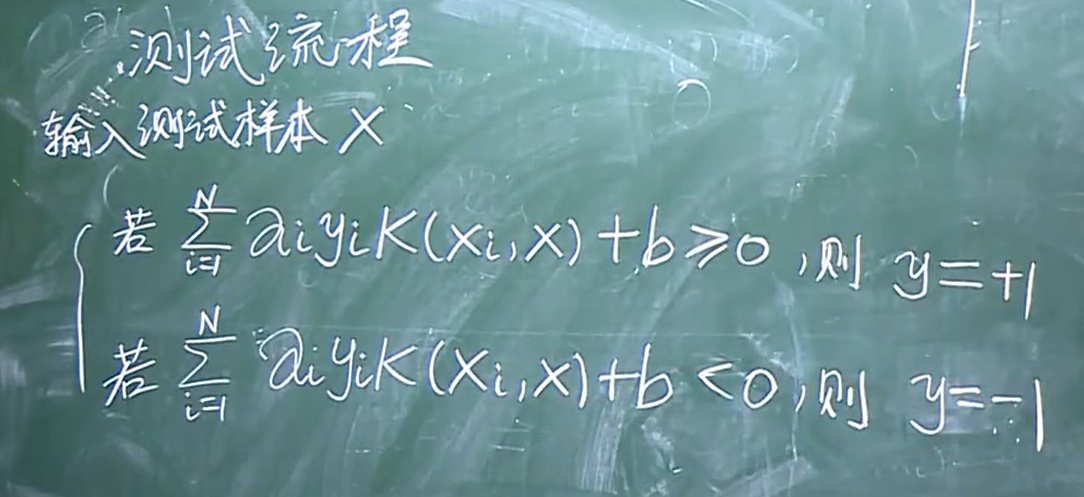 测试流程
输入测试样本 X
若 $\sum_{i=1}^{N} \alpha_i y_i K(X_i, X) + b \geq 0$ ,则 $y = +1$
若 $\sum_{i=1}^{N} \alpha_i y_i K(X_i, X) + b < 0$ ,则 $y = -1$